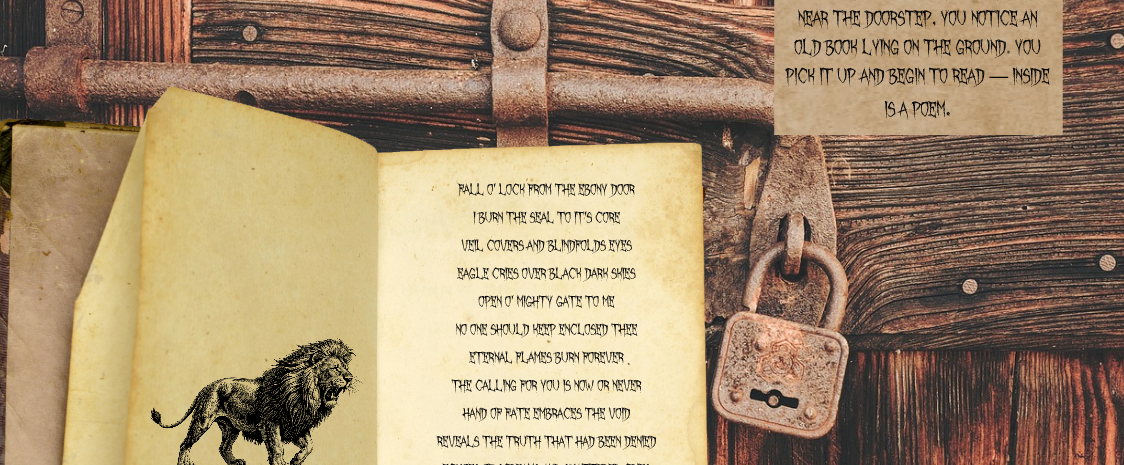 NEAR THE DOORSTEP, YOU NOTICE AN
OLD BOOK LYING ON THE GROUND. YOU
PICK IT UP AND BEGIN TO READ — INSIDE
IS A POEM.
FALL O' LOCK FROM THE EBONY DOOR
I BURN THE SEAL TO IT'S CORE
VEIL COVERS AND BLINDFOLDS EYES
EAGLE CRIES OVER BLACK DARK SKIES
OPEN O' MIGHTY GATE TO ME
NO ONE SHOULD KEEP ENCLOSED THEE
ETERNAL FLAMES BURN FOREVER,
THE CALLING FOR YOU IS NOW OR NEVER
HAND OF FATE EMBRACES THE VOID
REVEALS THE TRUTH THAT HAD BEEN DENIED